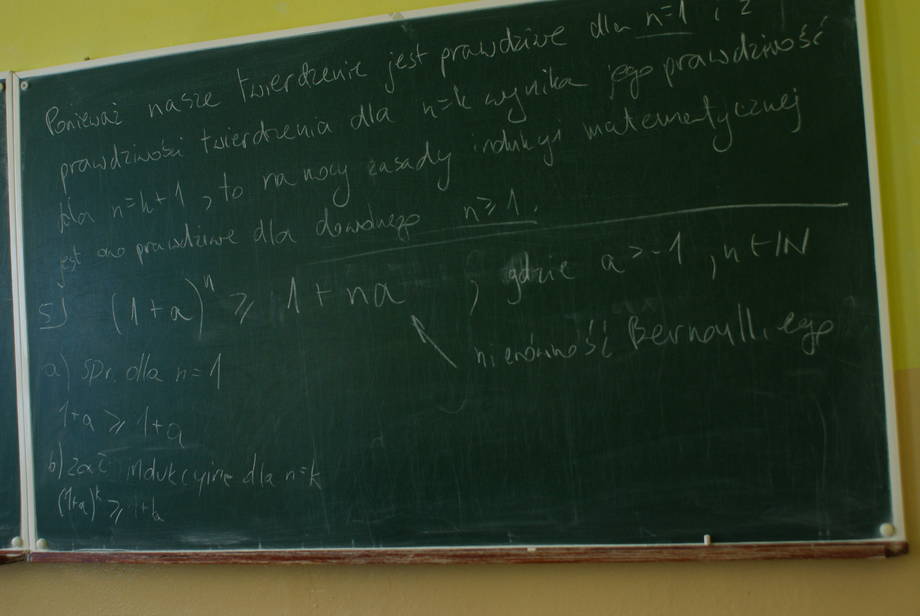 Ponieważ nasze twierdzenie jest prawdziwe dla n=1 i z
prawdziwości twierdzenia dla n=k wynika jego prawdziwość
dla n=k+1, to na mocy zasady indukcji matematycznej
jest ono prawdziwe dla dowolnego n≥1.
5) (1+a)^n ≥ 1+na, gdzie a>-1, n∈ℕ
nierówność Bernoulliego
a) spr. dla n=1
1+a ≥ 1+a
b) zał indukcyjne dla n=k
(1+a)^k ≥